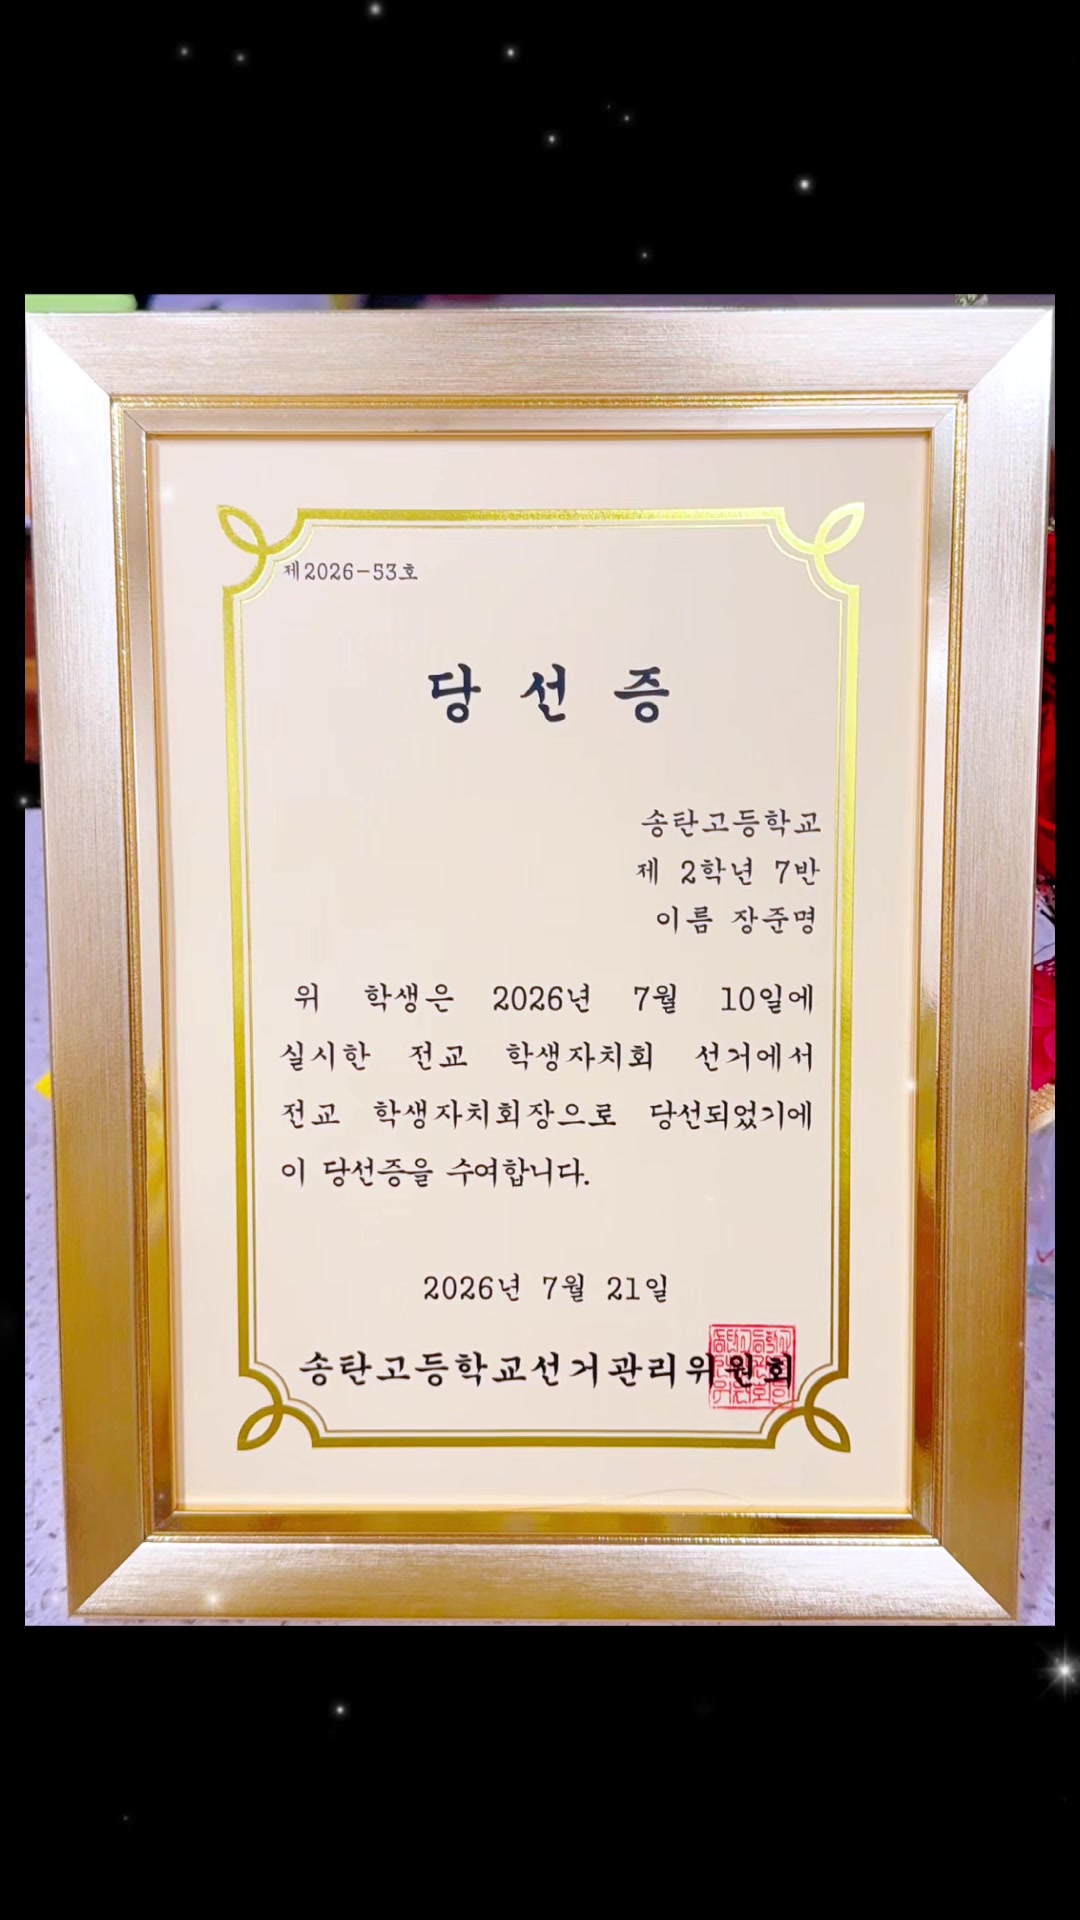 제2026-53호
당 선 증
송탄고등학교
제 2학년 7반
이름 장준명
위 학생은 2026년 7월 10일에
실시한 전교 학생자치회 선거에서
전교 학생자치회장으로 당선되었기에
이 당선증을 수여합니다.
2026년 7월 21일
송탄고등학교선거관리위원회